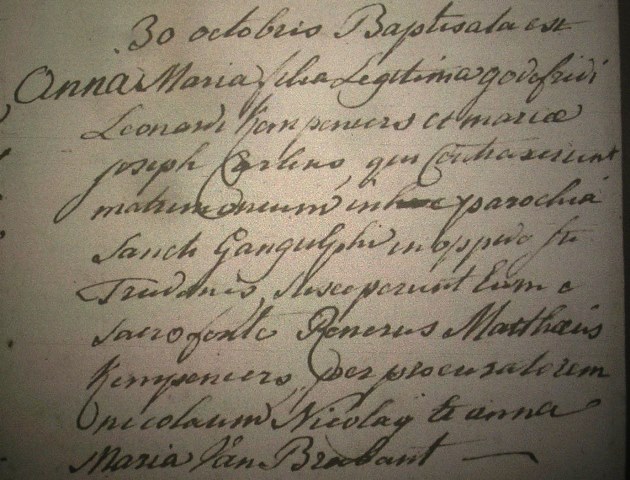 30 octobris Baptisata est
Anna Maria filia Legitima godefridi
Leonardi Kempeneers et mariæ
joseph Carlens, qui Contraxerunt
matrimonium in parochiâ
Sancti Gangulphi in oppido sti
Trudonis, susceperunt Eum e
sacro fonte Renerus Matthæus
Kempeneers, per procuratorem
nicolaum Nicolaÿ et anna
Maria Van Brabant